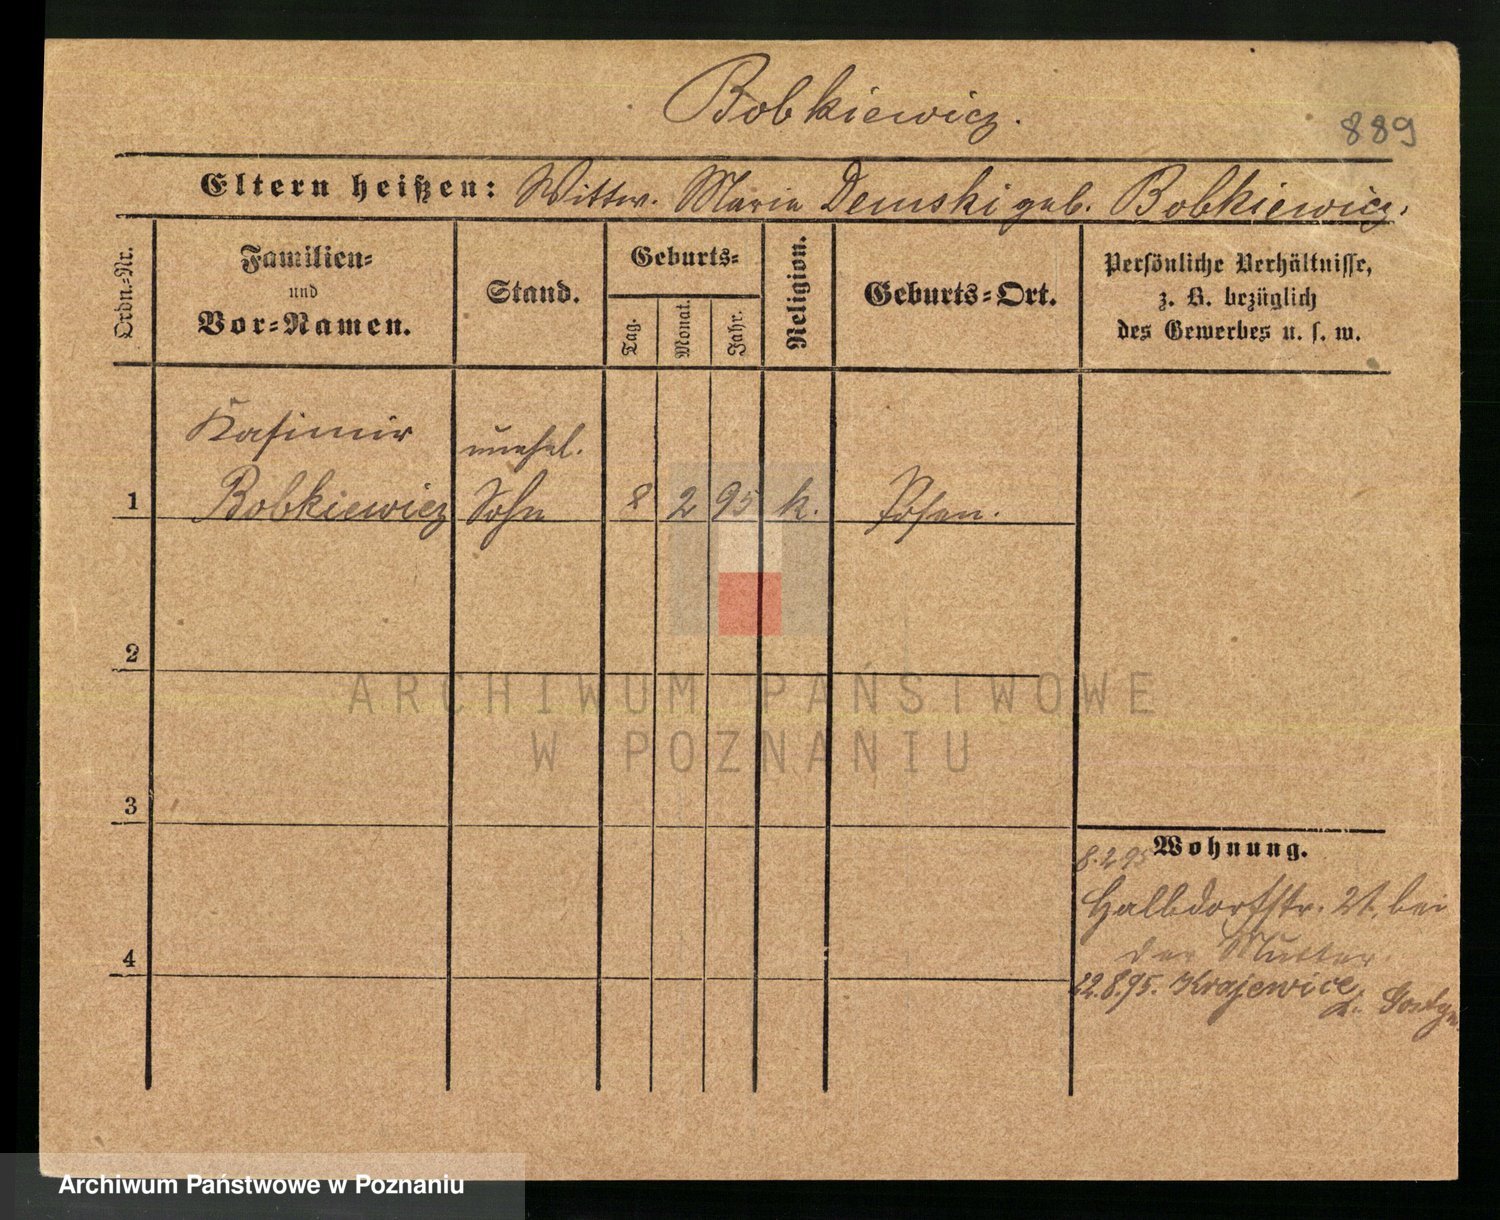 Bobkiewicz.
889
Eltern heißen: Wittw. Maria Demski geb. Bobkiewicz.
Ordn.-Nr.
Familien-
und
Vor-Namen.
Stand.
Geburts-
Tag.
Monat.
Jahr.
Religion.
Geburts-Ort.
Persönliche Verhältnisse,
z. B. bezüglich
des Gewerbes u. s. w.
Kasimir
unehel.
1 Bobkiewicz Sohn 8 2 95 k. Posen.
2
3
4
Wohnung.
8.2.95
Halbdorfstr. 21, bei
der Mutter
22.8.95. Krajewice
b. Gostyn.
ARCHIWUM PAŃSTWOWE
W POZNANIU
Archiwum Państwowe w Poznaniu